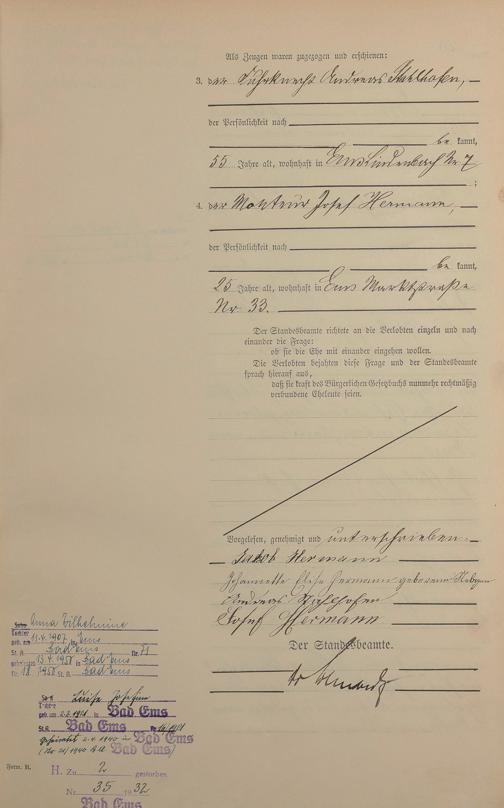 Als Zeugen waren zugezogen und erschienen:
3. der Fuhrknecht Andreas Stahlhofen,
der Persönlichkeit nach
be kannt,
55 Jahre alt, wohnhaft in Ems Lindenbach Nr 7
;
4. der Monteur Josef Hermann,
der Persönlichkeit nach
be kannt,
25 Jahre alt, wohnhaft in Ems Marktstraße
Nr 33.
Der Standesbeamte richtete an die Verlobten einzeln und nach
einander die Frage:
ob sie die Ehe mit einander eingehen wollen.
Die Verlobten bejahten diese Frage und der Standesbeamte
sprach hierauf aus,
daß sie kraft des Bürgerlichen Gesetzbuchs nunmehr rechtmäßig
verbundene Eheleute seien.
Vorgelesen, genehmigt und unterschrieben
Jakob Hermann
Johannette Elise Hermann geborene
Andreas Stahlhofen
Josef Hermann
Der Standesbeamte.
Anna Wilhelmine
Tochter
geb. am 11.4.1907 in Ems
St. A. Bad Ems Nr. 71
13.4.1958 in Bad Ems
Nr. 18/1958 St. A. Bad Ems
Luise Josefine
geb. am in Bad Ems
St.A. Bad Ems Nr.
geheiratet 2.4.1940 in Bad Ems
(Nr 21/1940 StA Bad Ems)
Form. B.
H. Zu 2 gestorben
Nr. 35 1932
Bad Ems